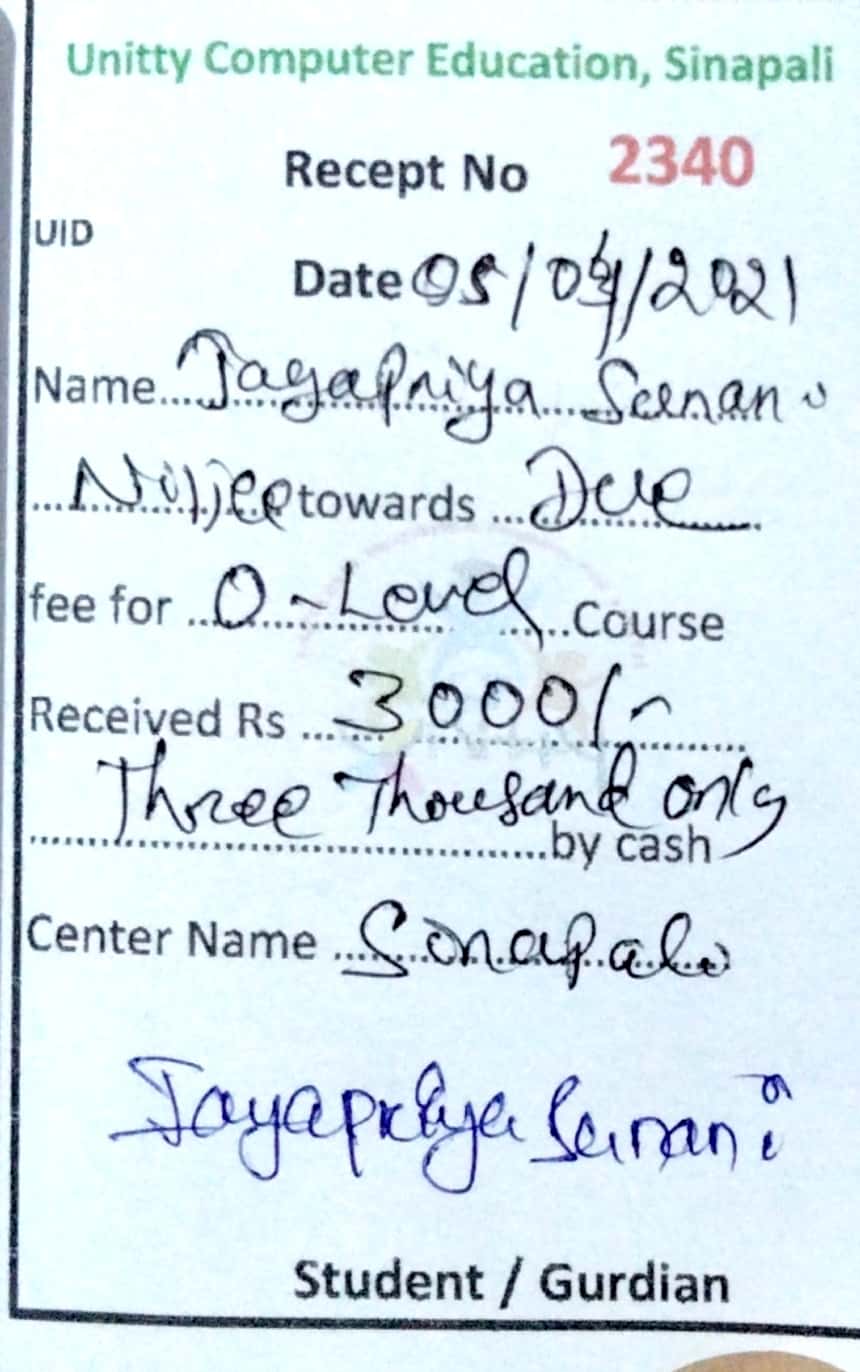 Unitty Computer Education, Sinapali
Recept No 2340
UID
Date 05/04/2021
Name Jayapriya Seenani
towards Due
fee for O-Level Course
Received Rs 3000/-
Three Thousand only
by cash
Center Name Sinapali
Jayapriya Seinani
Student / Gurdian